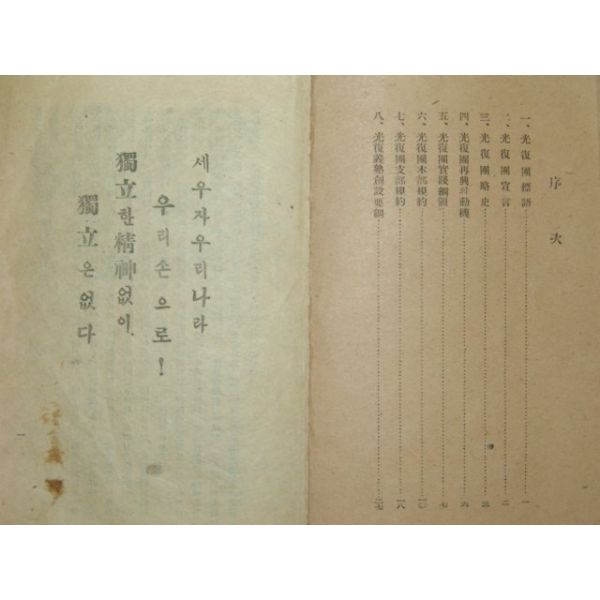 序次
一、光復團標語 一
二、光復團宣言 二
三、光復團略史 三
四、光復團再興의動機 六
五、光復團實踐綱領 七
六、光復團本部規約 一〇
七、光復團支部規約 一八
八、光復義塾創設要綱 二七
세우자우리나라
우리손으로!
獨立한精神없이
獨立은없다
一